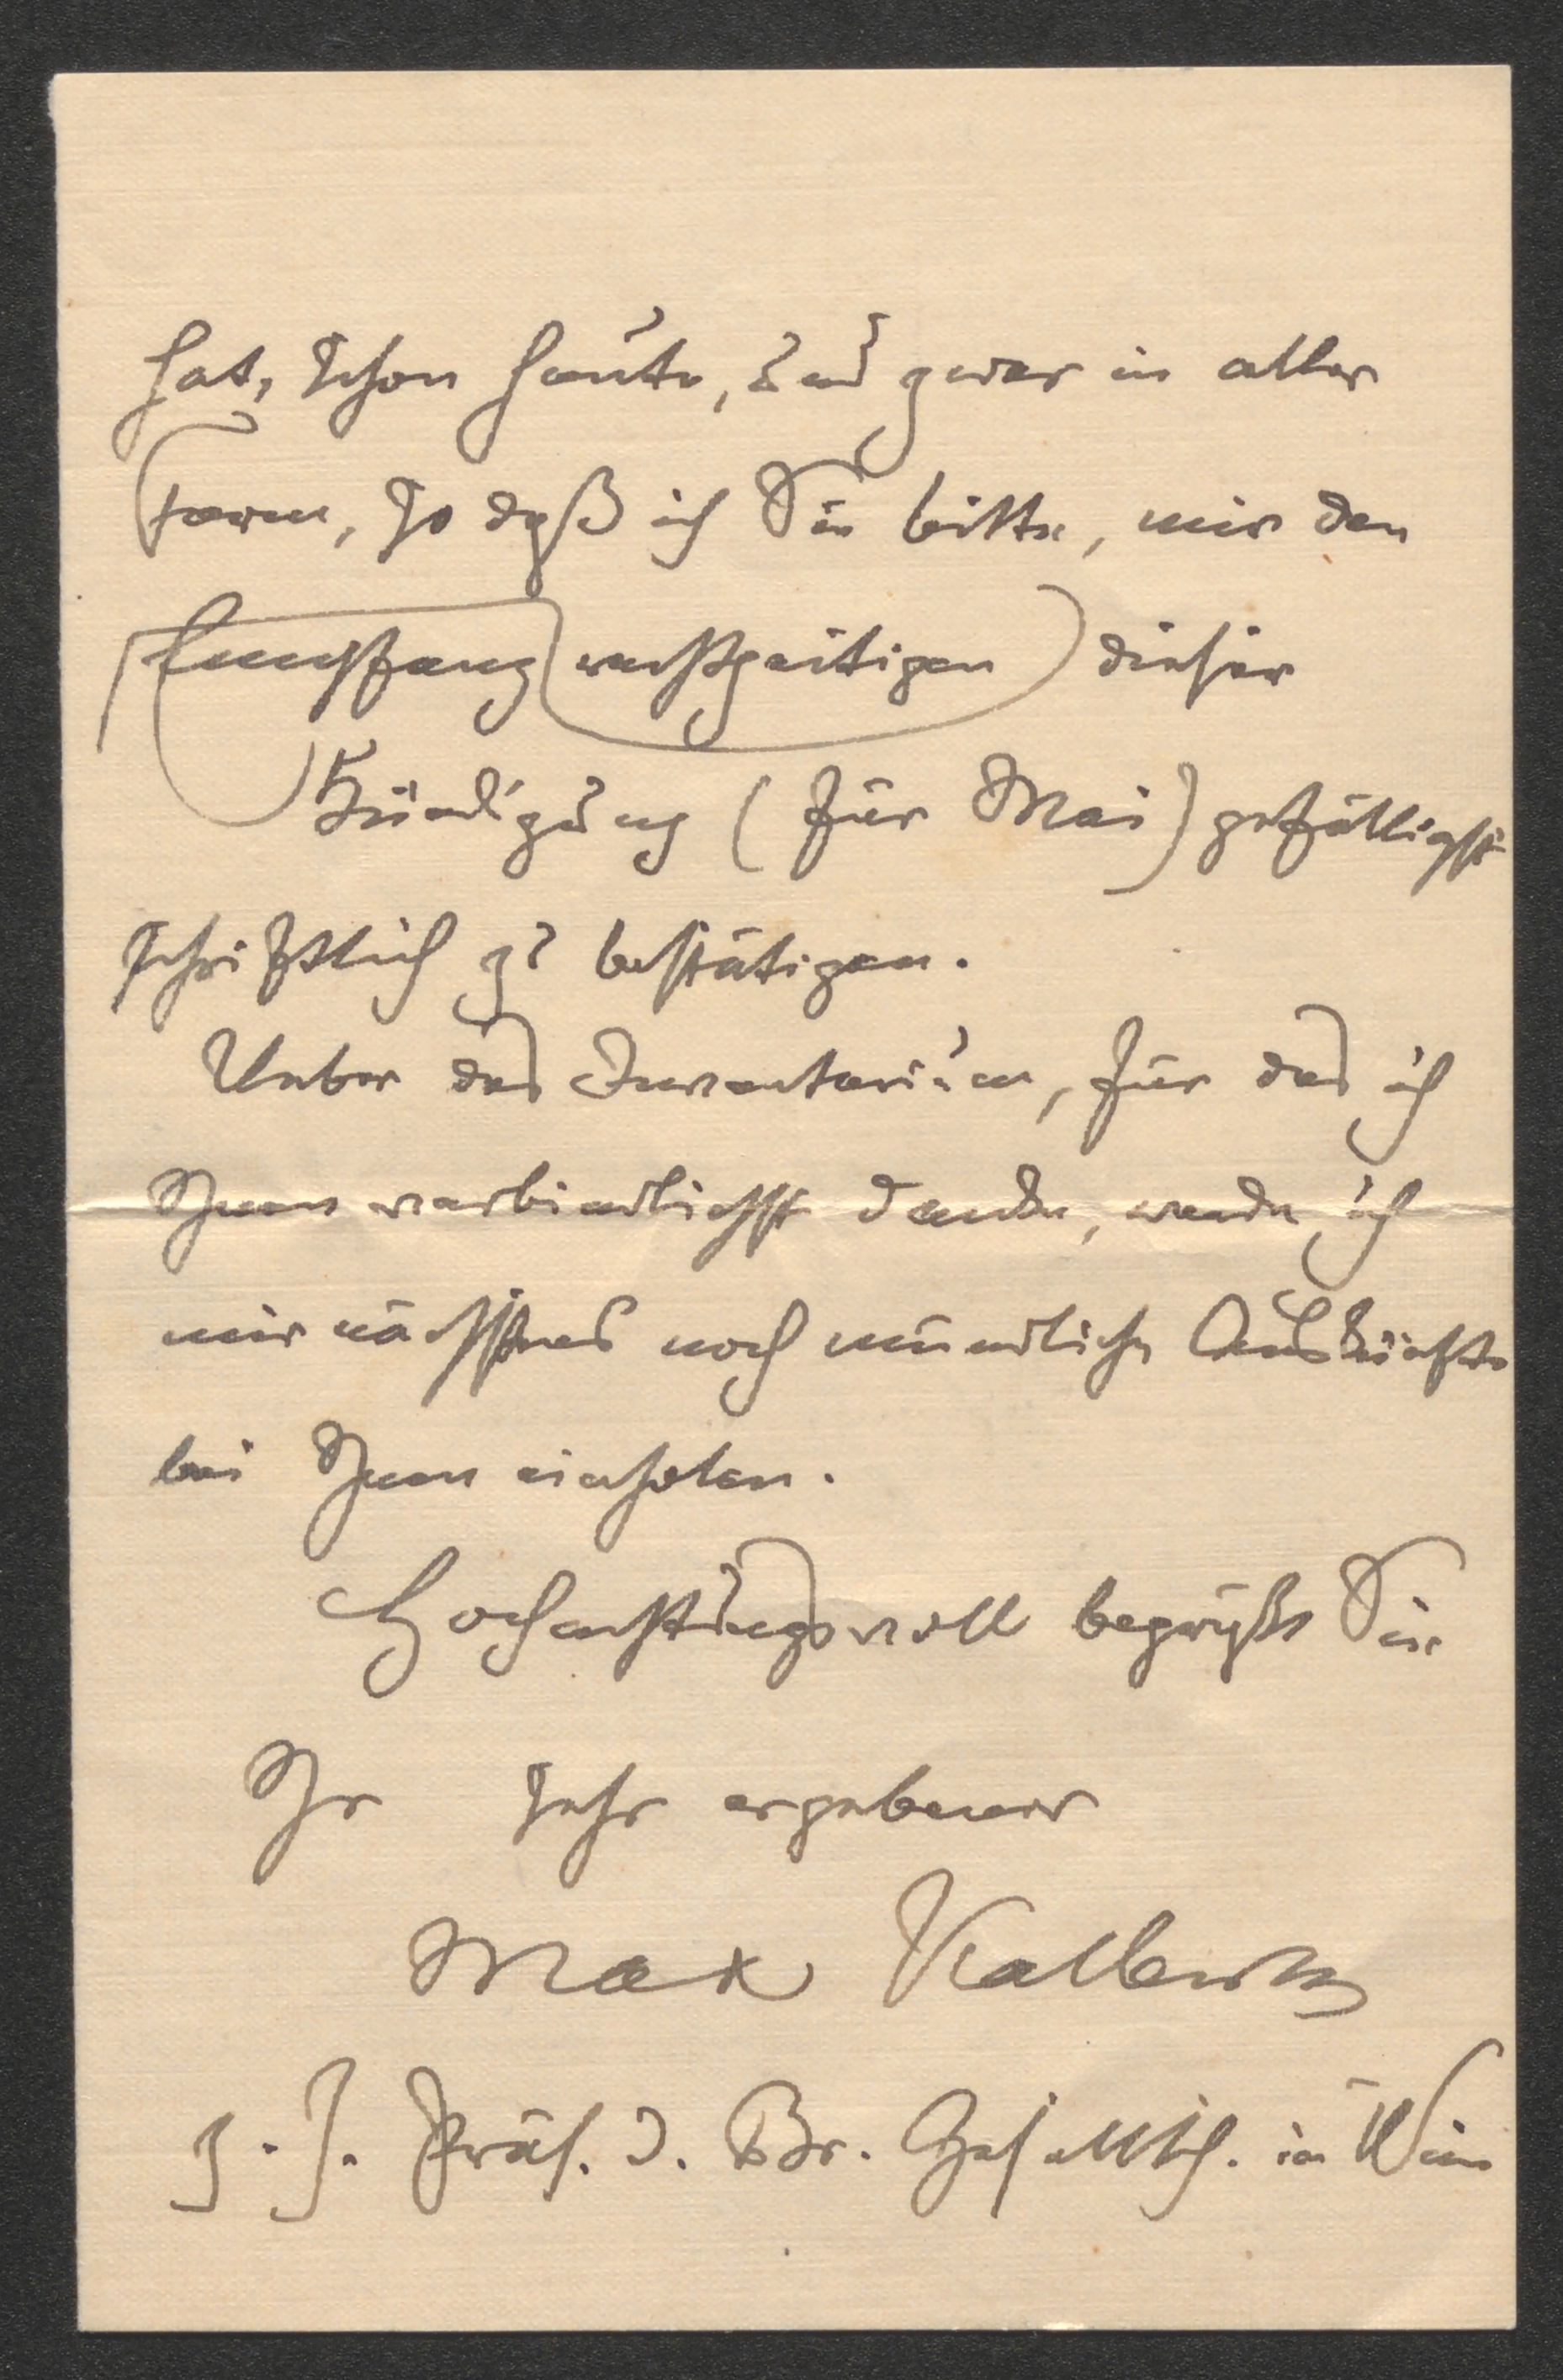 hat, schon heute, und zwar in aller
Form, so daß ich Sie bitte, mir den
Empfang rechtzeitigen dieser
Kündigung (für Mai) gefälligst
schriftlich zu bestätigen.
Ueber das Inventarium, für das ich
Ihnen verbindlichst danke, werde ich
mir nächstens noch mündliche Auskünfte
bei Ihnen einholen.
Hochachtungsvoll begrüßt Sie
Ihr sehr ergebener
Max Kalbeck
z. Z. Präs. d. Br. Gesellsch. in Wien